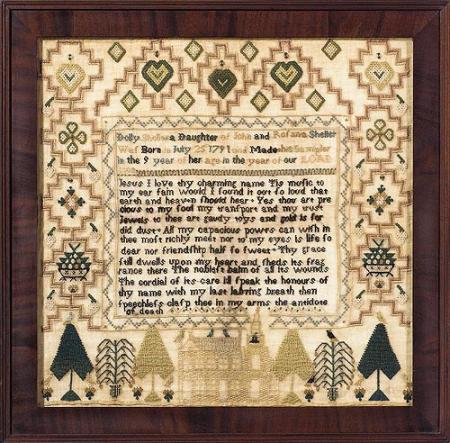 Dolly a Daughter of John and Rosana Shelter
Waf Born July 25 1791 and Made Sampler
in the 9 year of her age in the year of our LORD
Jesus I love thy charming name Tis mufic to
my ear fain would I found it out fo loud that
earth and heaven fhould hear Yes thou art pre
cious to my foul my tranfport and my truft
Jewels to thee are gaudy toys and gold is for
did duft All my capacious powrs can wifh in
thee moft richly meet nor to my eyes is life fo
dear nor friendfhip half fo fweet Thy grace
ftill dwells upon my heart and fheds its frag
rance there The nobleft balm of all its wounds
The cordial of its care Ill fpeak the honours of
thy name with my laft labring breath then
fpeechlefs clafp thee in my arms the antidote
of death